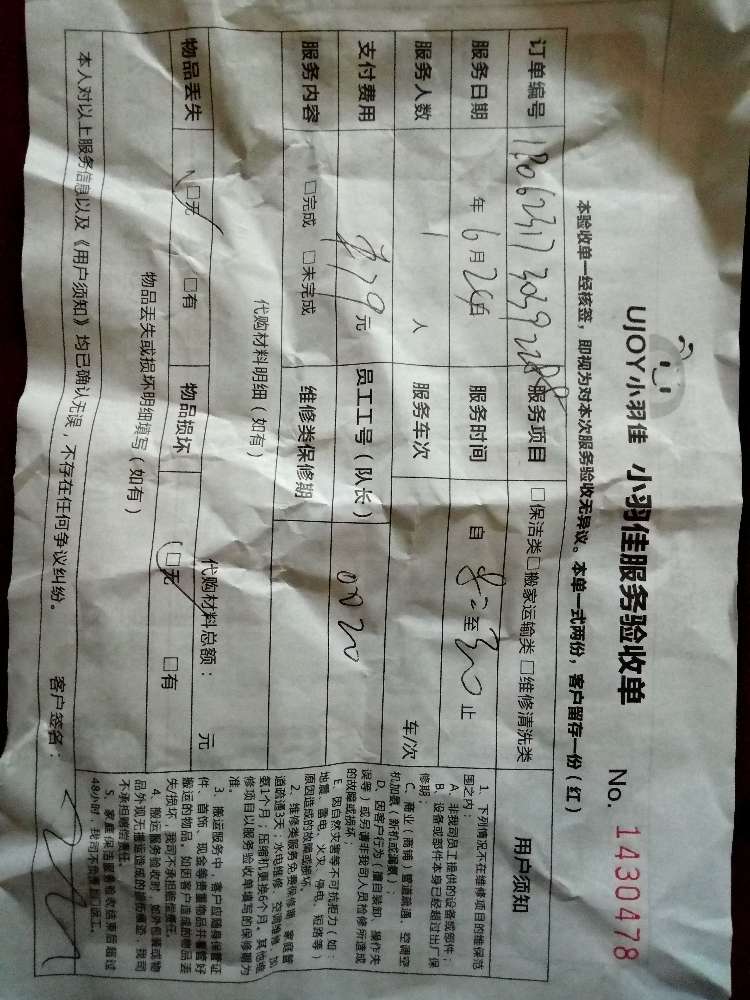 UJOY小羽佳 小羽佳服务验收单 No. 1430478
本验收单一经核签，即视为对本次服务验收无异议。本单一式两份，客户留存一份（红）
订单编号 服务项目 □保洁类□搬家运输类 □维修清洗类
服务日期 年 6月 日 服务时间 自 至 止
服务人数 1 人 服务车次 车/次
支付费用 元 员工工号（队长）
服务内容 □完成 □未完成 维修类保修期
代购材料明细（如有） 代购材料总额： 元
物品丢失 □无 □有 物品损坏 □无 □有
物品丢失或损坏明细填写（如有）
本人对以上服务信息以及《用户须知》均已确认无误，不存在任何争议纠纷。 客户签名：
用户须知
1、下列情况不在维修项目的维保范
围之内：
A、非我司员工提供的设备或部件；
B、设备或部件本身已经超过出厂保
修期；
C、商业（商铺）管道疏通、空调空
机加氨（新机或漏氨）；
D、因客户行为（擅自装卸、操作失
误等）或另请非我司人员检修所造成
的故障或损坏
E、因自然灾害等不可抗拒力（如：
地震、雷电、火灾、停电、短路等）
原因造成的故障或损坏。
2、维修类服务免费保修期：家庭管
道疏通3天；水电维修、空调维修、加
氨1个月；压缩机更换6个月。其他维
修项目以服务验收单填写的保修期为
准。
3、搬运服务中，客户应随身保管证
件、首饰、现金等贵重物品并看管好
搬运的物品。如因客户造成的物品丢
失/损坏，我司不承担赔偿责任。
4、搬运服务验收时，如外包装或物
品外观无搬运造成的 ，我司
不承担赔偿责任。
5、家庭保洁服务验收结束后超过
48小时，我司不负责 返工。